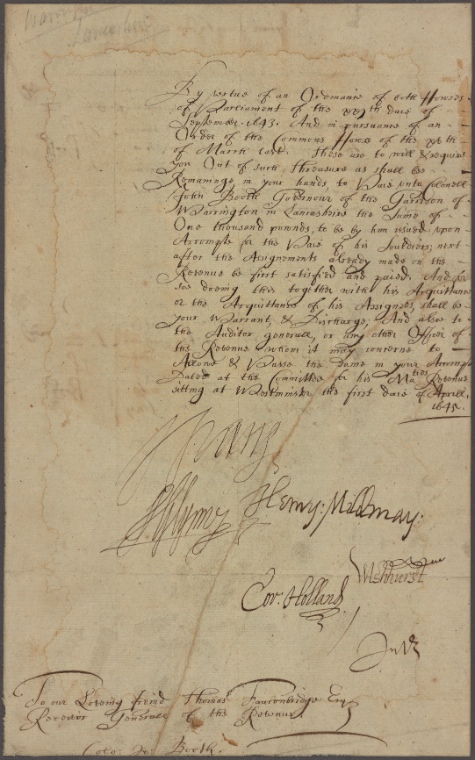 Warrington
Lancashire
By vertue of an Ordinance of both Houses
of Parliament of the xxjth daie of
September 1643. And in pursuance of an
Order of the Commons House of the
of March last. These are to will & require
you Out of such threasure as shall be
Remaininge in your hands, to Paie unto Colonell
John Booth Governour of the Garrison of
Warrington in Lancashire the Some of
One thousand pownds, to be by him issued upon
Accompte for the Paie of his Souldiers; next
after the Assignements already made on the
Revenue be first satisfied and paied. And for
soe doeing this together with his Acquittance
or the Acquittance of his Assignes, shall be
your Warrant, & Discharge, And alsoe to
the Auditor generall, or any other Officer of
the Revenue whom it may concerne to
Allowe & Passe the Same in your Accompt
Dated at the Committee for his Maties Revenue
sitting at Westminster the first daie of Aprill,
1645.
Henry: Mildmay:
Cor: Holland
To our Loveing freind Thomas Fauconbridge Esqr
Receivor Generall of the Revenue
Colo: Jo: Booth.